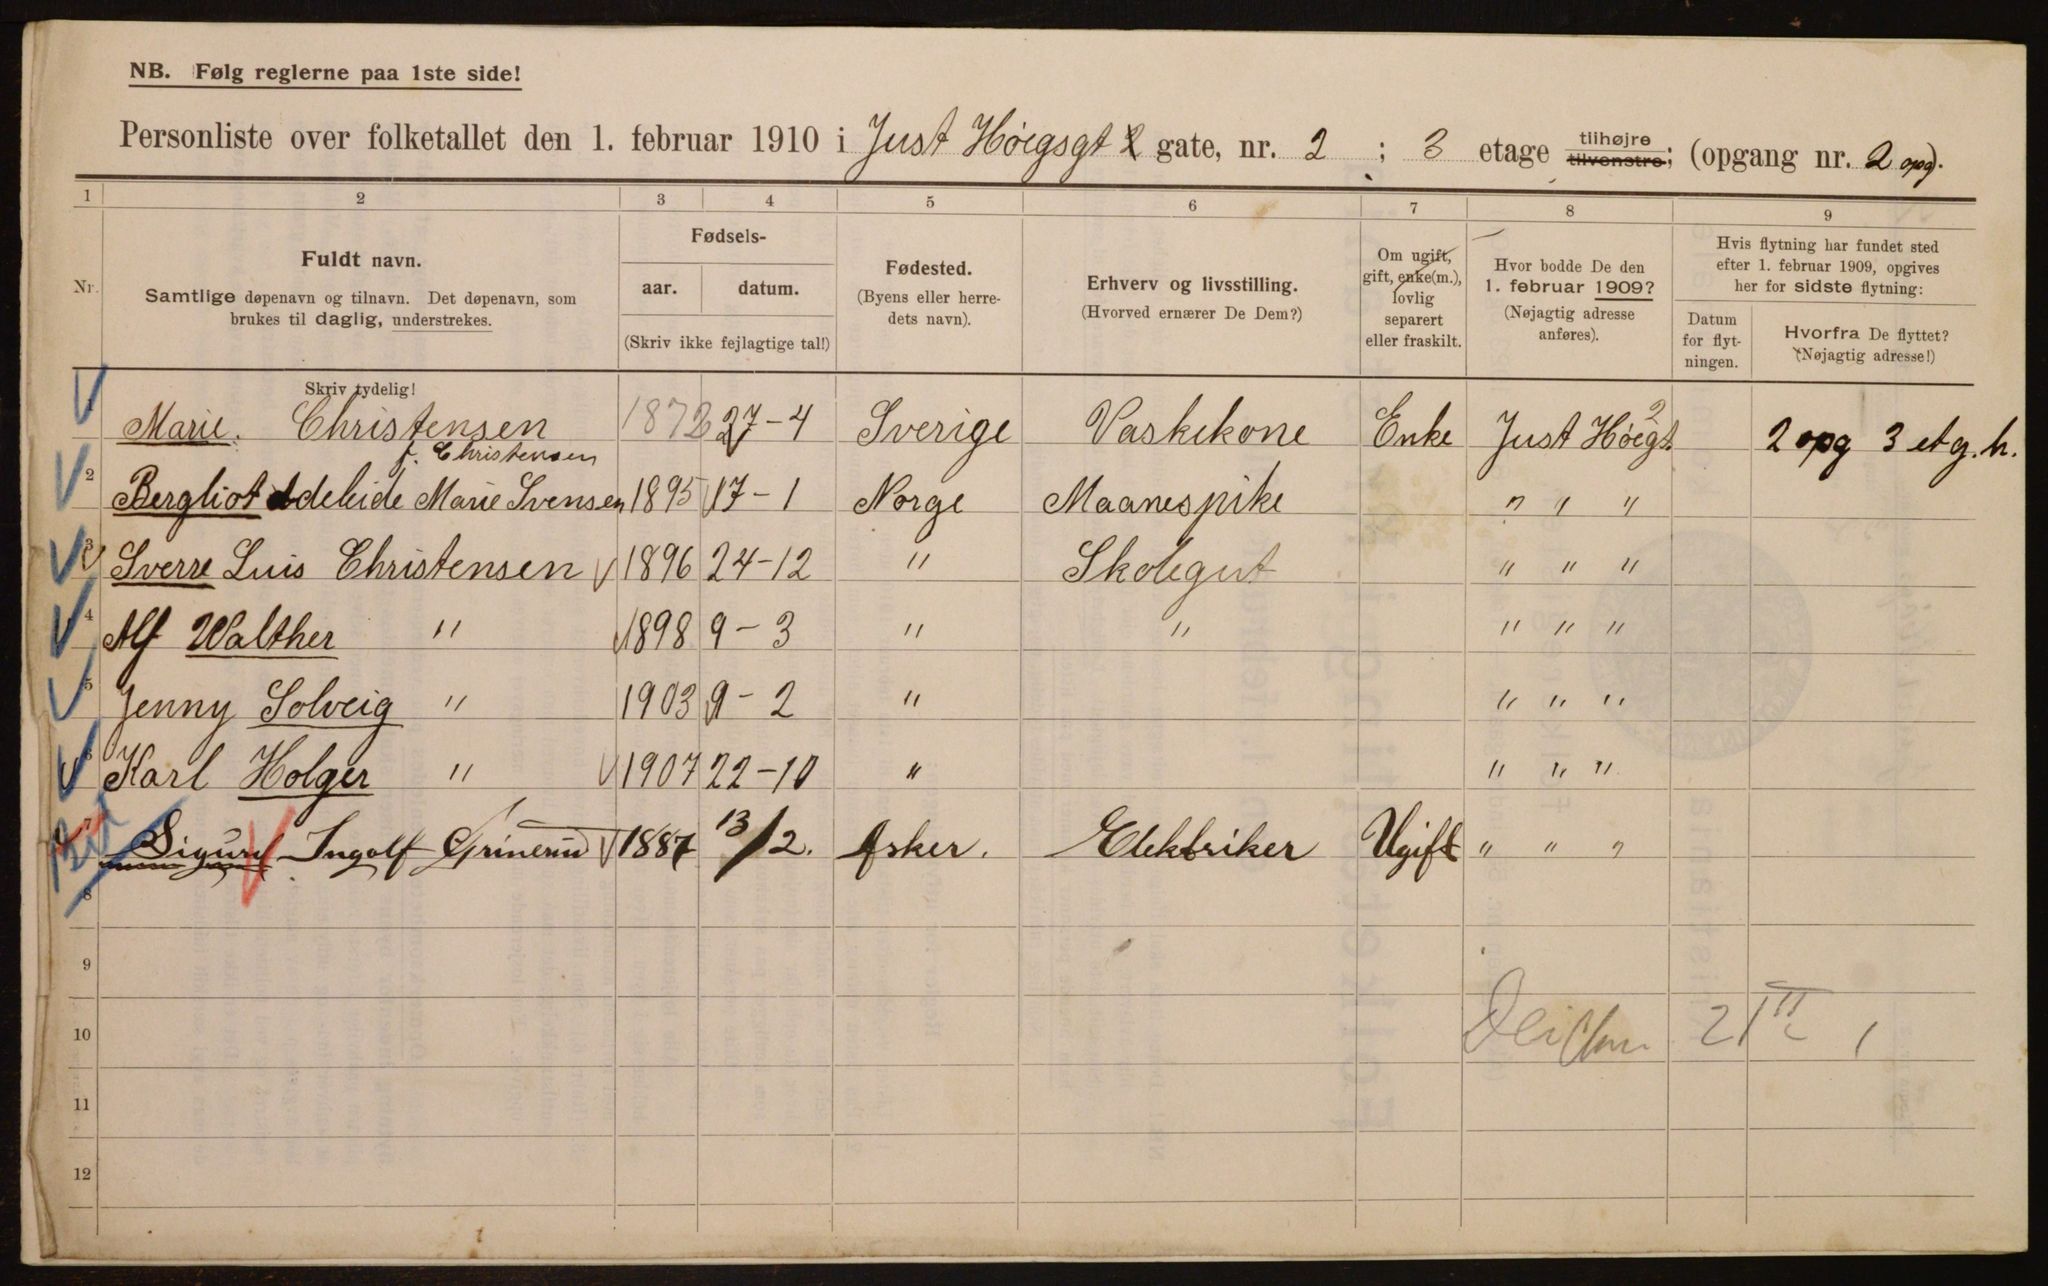 NB. Følg reglerne paa 1ste side!
Personliste over folketallet den 1. februar 1910 i Just Høegsgt 2 gate, nr. 2 ; 3 etage tilhøjre tilvenstre; (opgang nr. 2 opg).
1 2 3 4 5 6 7 8 9
Nr.
Fuldt navn.
Samtlige døpenavn og tilnavn. Det døpenavn, som
brukes til daglig, understrekes.
Skriv tydelig!
Fødsels-
aar. datum.
(Skriv ikke fejlagtige tal!)
Fødested.
(Byens eller herre-
dets navn).
Erhverv og livsstilling.
(Hvorved ernærer De Dem?)
Om ugift,
gift, enke(m.),
lovlig
separert
eller fraskilt.
Hvor bodde De den
1. februar 1909?
(Nøjagtig adresse
anføres).
Hvis flytning har fundet sted
efter 1. februar 1909, opgives
her for sidste flytning:
Datum
for flyt-
ningen.
Hvorfra De flyttet?
(Nøjagtig adresse!)
1 Marie. Christensen 1872 27-4 Sverige Vaskekone Enke Just Høegt. 2 2 opg 3 etg. h.
f. Christensen
2 Bergliot Adeleide Marie Svensen 1895 17-1 Norge Maanespike " " "
3 Sverre Luis Christensen 1896 24-12 " Skolegut " " "
4 Alf Walther " 1898 9-3 " " " " "
5 Jenny Solveig " 1903 9-2 " " " "
6 Karl Holger " 1907 22-10 " " " "
7 Sigurd Ingolf Grinerud 1887 13/2. Asker. Elektriker Ugift " " "
8
9
10 21 III
11
12